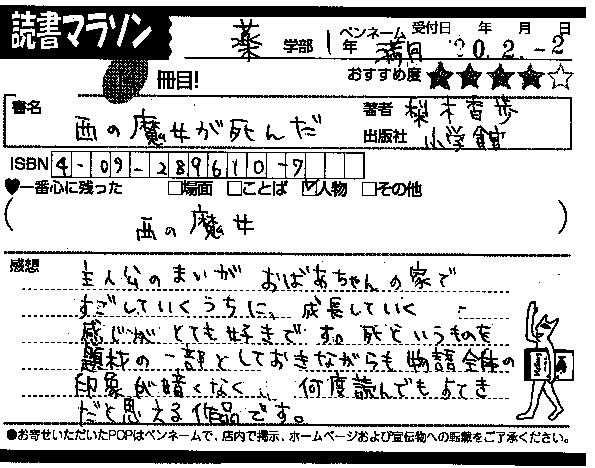 読書マラソン
薬 学部 1年 ペンネーム 満月 受付日 年 月 日 '20.2.-2
冊目! おすすめ度 ★★★★☆
書名 西の魔女が死んだ 著者 梨木香歩
出版社 小学館
ISBN 4-09-289610-7
♥一番心に残った □場面 □ことば ☑人物 □その他
( 西の魔女 )
感想 主人公のまいが おばあちゃんの家で
すごしていくうちに、成長していく
感じが とても好きです。死というものを
題材の一部としておきながらも 物語全体の
印象が暗くなく、何度読んでもすてき
だと思える作品です。
●お寄せいただいたPOPはペンネームで、店内で掲示、ホームページおよび宣伝物への転載をご了承ください。